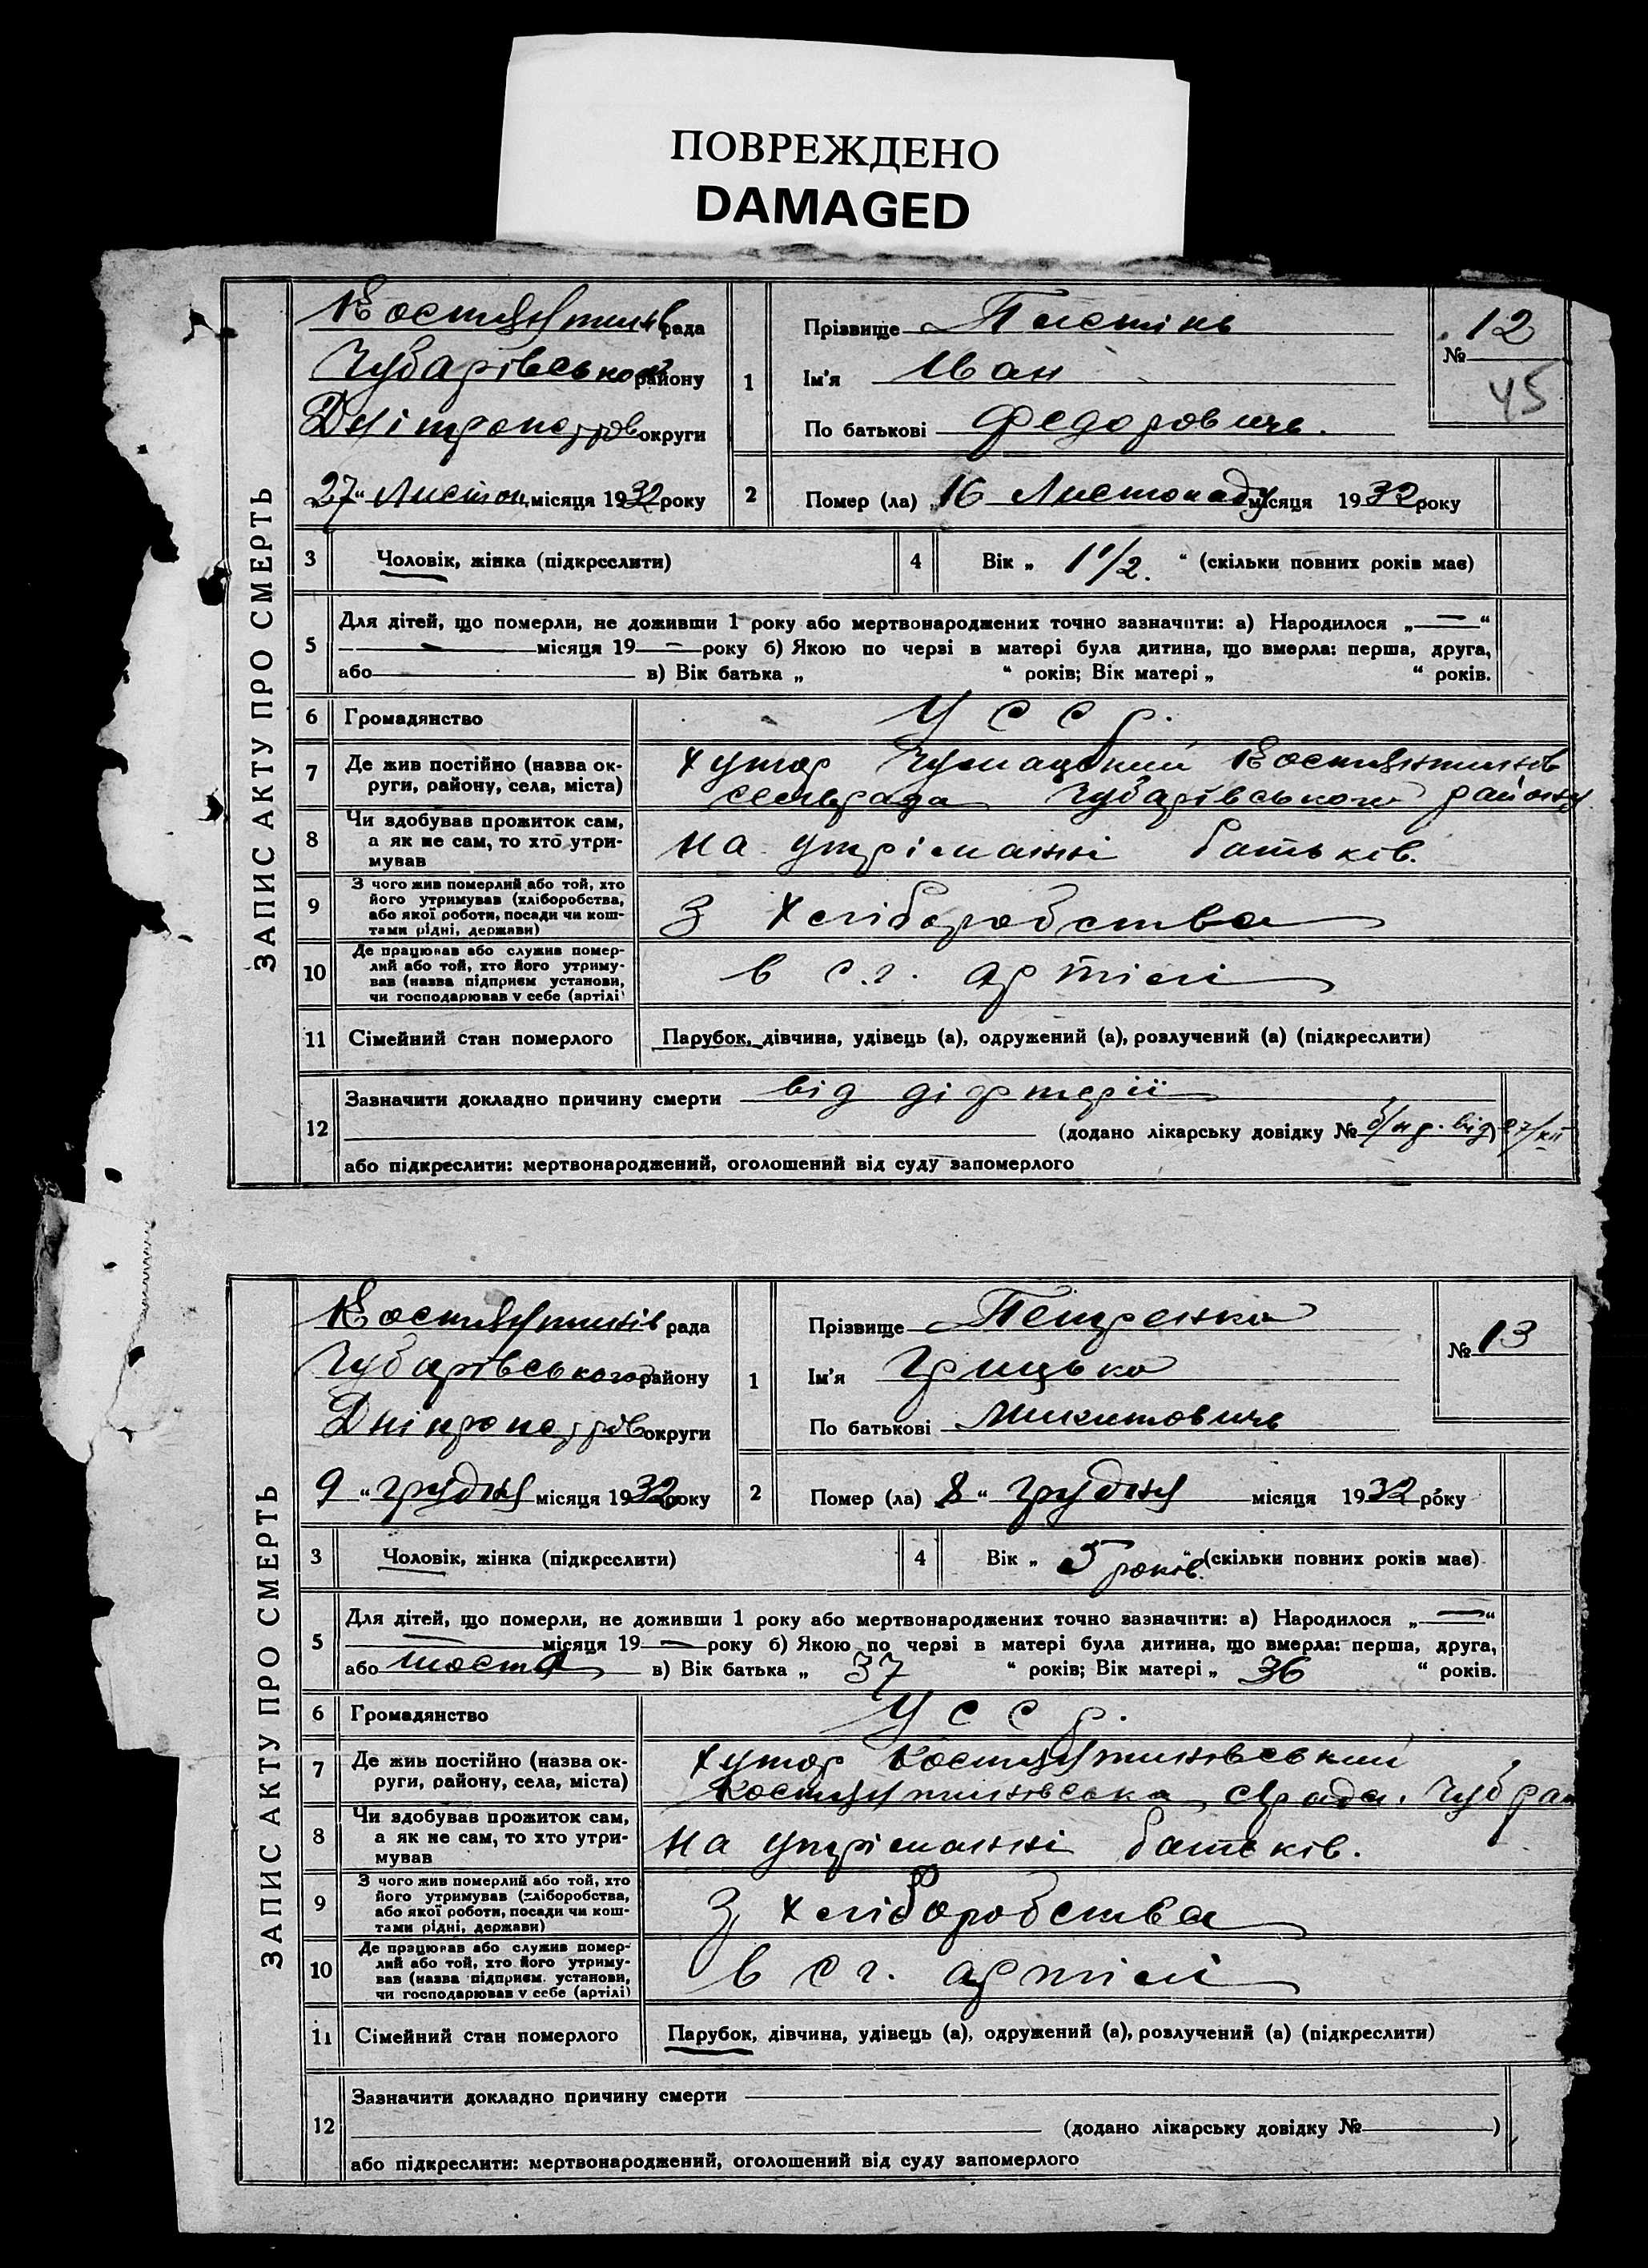 ПОВРЕЖДЕНО
DAMAGED
ЗАПИС АКТУ ПРО СМЕРТЬ
Костянтинів рада
Чубарівського району
Дніпропетров округи
27 „ Листоп. місяця 1932 року
1
Прізвище
Ім'я Іван
По батькові Федорович.
№ 12
45
2 Помер (ла) „16 Листопаду місяця 1932 року
3 Чоловік, жінка (підкреслити)
4 Вік „ 1 1/2. “ (скільки повних років має)
5 Для дітей, що померли, не доживши 1 року або мертвонароджених точно зазначити: а) Народилося „ — “
— місяця 19 — року б) Якою по черзі в матері була дитина, що вмерла: перша, друга,
або в) Вік батька „ “ років; Вік матері „ “ років.
6 Громадянство У С С Р.
7 Де жив постійно (назва ок-
руги, району, села, міста)
хутор Чумацький Костянтинов
сельрада Чубарівського району
8 Чи здобував прожиток сам,
а як не сам, то хто утри-
мував
на утріманні батьків.
9 З чого жив померлий або той, хто
його утримував (хліборобства,
або якої роботи, посади чи кош-
тами рідні, держави)
З хліборобства
10 Де працював або служив помер-
лий або той, хто його утриму-
вав (назва підприєм установи,
чи господарював у себе (артілі)
в с.г. артілі
11 Сімейний стан померлого Парубок, дівчина, удівець (а), одружений (а), розлучений (а) (підкреслити)
12 Зазначити докладно причину смерти від діфтерії
(додано лікарську довідку № б/нр. від) 27/XII
або підкреслити: мертвонароджений, оголошений від суду запомерлого
ЗАПИС АКТУ ПРО СМЕРТЬ
Костянтинів рада
Чубарівського району
Дніпропетрів округи
9 “ грудня місяця 1932 року
1
Прізвище Петренко
Ім'я Грицько
По батькові Микитович
№ 13
2 Помер (ла) 8 “ грудня місяця 1932 року
3 Чоловік, жінка (підкреслити)
4 Вік „ 5 років. “ (скільки повних років має)
5 Для дітей, що померли, не доживши 1 року або мертвонароджених точно зазначити: а) Народилося „ — “
— місяця 19 — року б) Якою по черзі в матері була дитина, що вмерла: перша, друга,
або шоста в) Вік батька „ 37 “ років; Вік матері „ 36 “ років.
6 Громадянство У С С Р.
7 Де жив постійно (назва ок-
руги, району, села, міста)
хутор Костянтинівський
Костянтинівська с/рада. Чуб рай
8 Чи здобував прожиток сам,
а як не сам, то хто утри-
мував
на утріманні батьків.
9 З чого жив померлий або той, хто
його утримував (хліборобства,
або якої роботи, посади чи кош-
тами рідні, держави)
З хліборобства
10 Де працював або служив помер-
лий або той, хто його утриму-
вав (назва підприєм. установи,
чи господарював у себе (артілі)
в с г. артілі
11 Сімейний стан померлого Парубок, дівчина, удівець (а), одружений (а), розлучений (а) (підкреслити)
12 Зазначити докладно причину смерти
(додано лікарську довідку № )
або підкреслити: мертвонароджений, оголошений від суду запомерлого